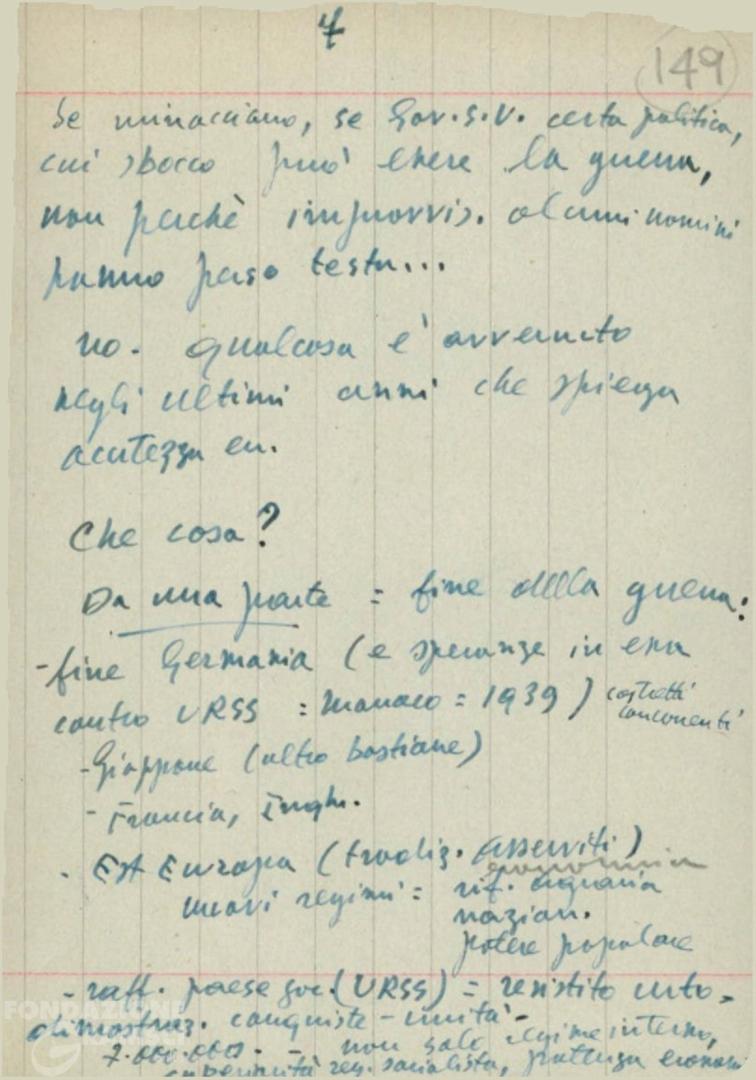 4
149
Se minacciano, se Gov. S.U. certa politica,
cui sbocco può essere la guerra,
non perchè improvvis. alcuni uomini
hanno perso testa...
no. qualcosa è avvenuto
negli ultimi anni che spiega
acutezza
Che cosa?
Da una parte = fine della guerra:
- fine Germania (e speranze in essa
contro URSS = Monaco = 1939) costretti
concorrenti
- Giappone (altro bastione)
- Francia, Ingh.
- Est Europa (tradiz. asserviti)
economia
nuovi regimi = rif. agraria
nazion.
potere popolare
- raff. paese soc. (URSS) = resistito urto -
dimostraz. conquiste - unità -
7.000.000 - non solo regime interno,
superiorità reg. socialista, potenza econom
FONDAZIONE
GRAMSCI